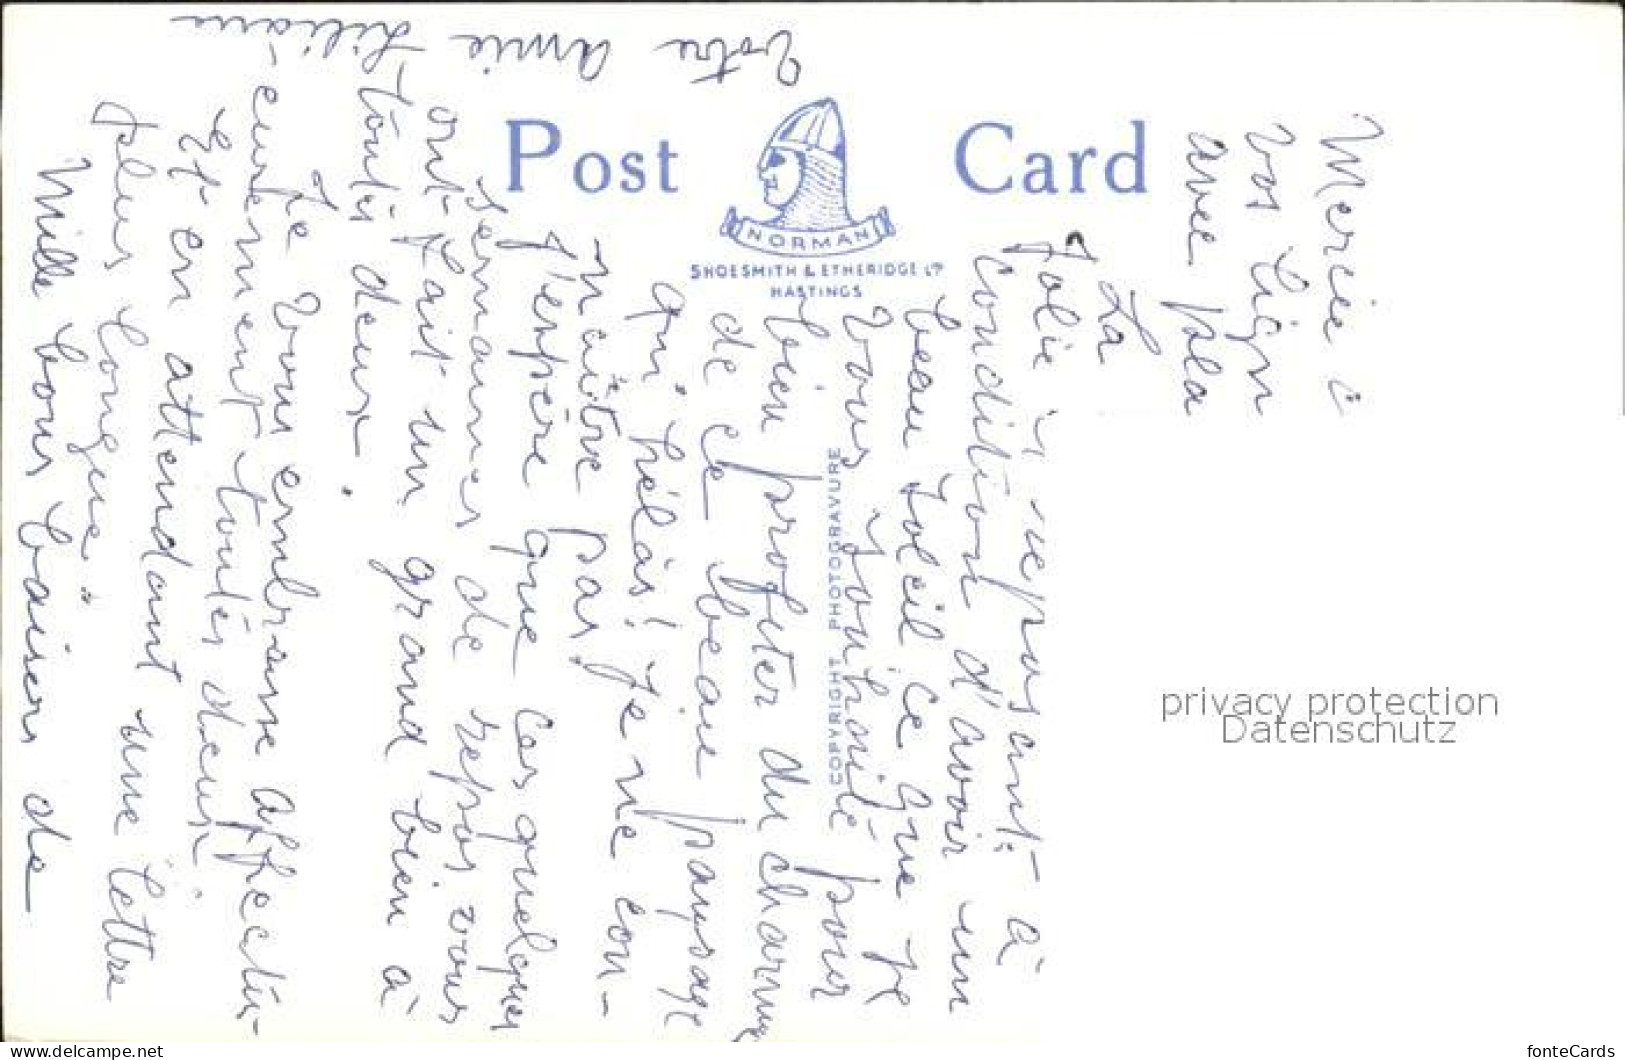 Post Card
NORMAN
SHOESMITH & ETHERIDGE LTD
HASTINGS
COPYRIGHT PHOTOGRAVURE
Mercie
vos lign
avec pla
La
Jolie reposant à
condition d'avoir un
beau soleil ce que je
vous souhaite pour
bien profiter du charme
de ce beau paysage
qui hélas! je ne con-
naître pas,
j'espère que ces quelques
semaines de repos vous
ont fait un grand bien à
toutes deux.
Je vous embrasse affectu-
eusement toutes deux
Et en attendant une lettre
plus longue"
Mille bons baisers de
Votre amie Liliane
privacy protection
Datenschutz
www.delcampe.net
fonteCards